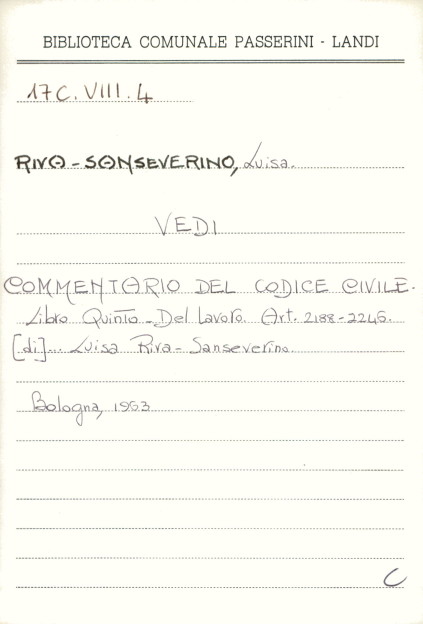 BIBLIOTECA COMUNALE PASSERINI - LANDI
17C.VIII.4
RIVA-SANSEVERINO, Luisa.
VEDI
COMMENTARIO DEL CODICE CIVILE.
Libro Quinto - Del lavoro. Art. 2188-2246.
[di]... Luisa Riva-Sanseverino.
Bologna, 1963
C